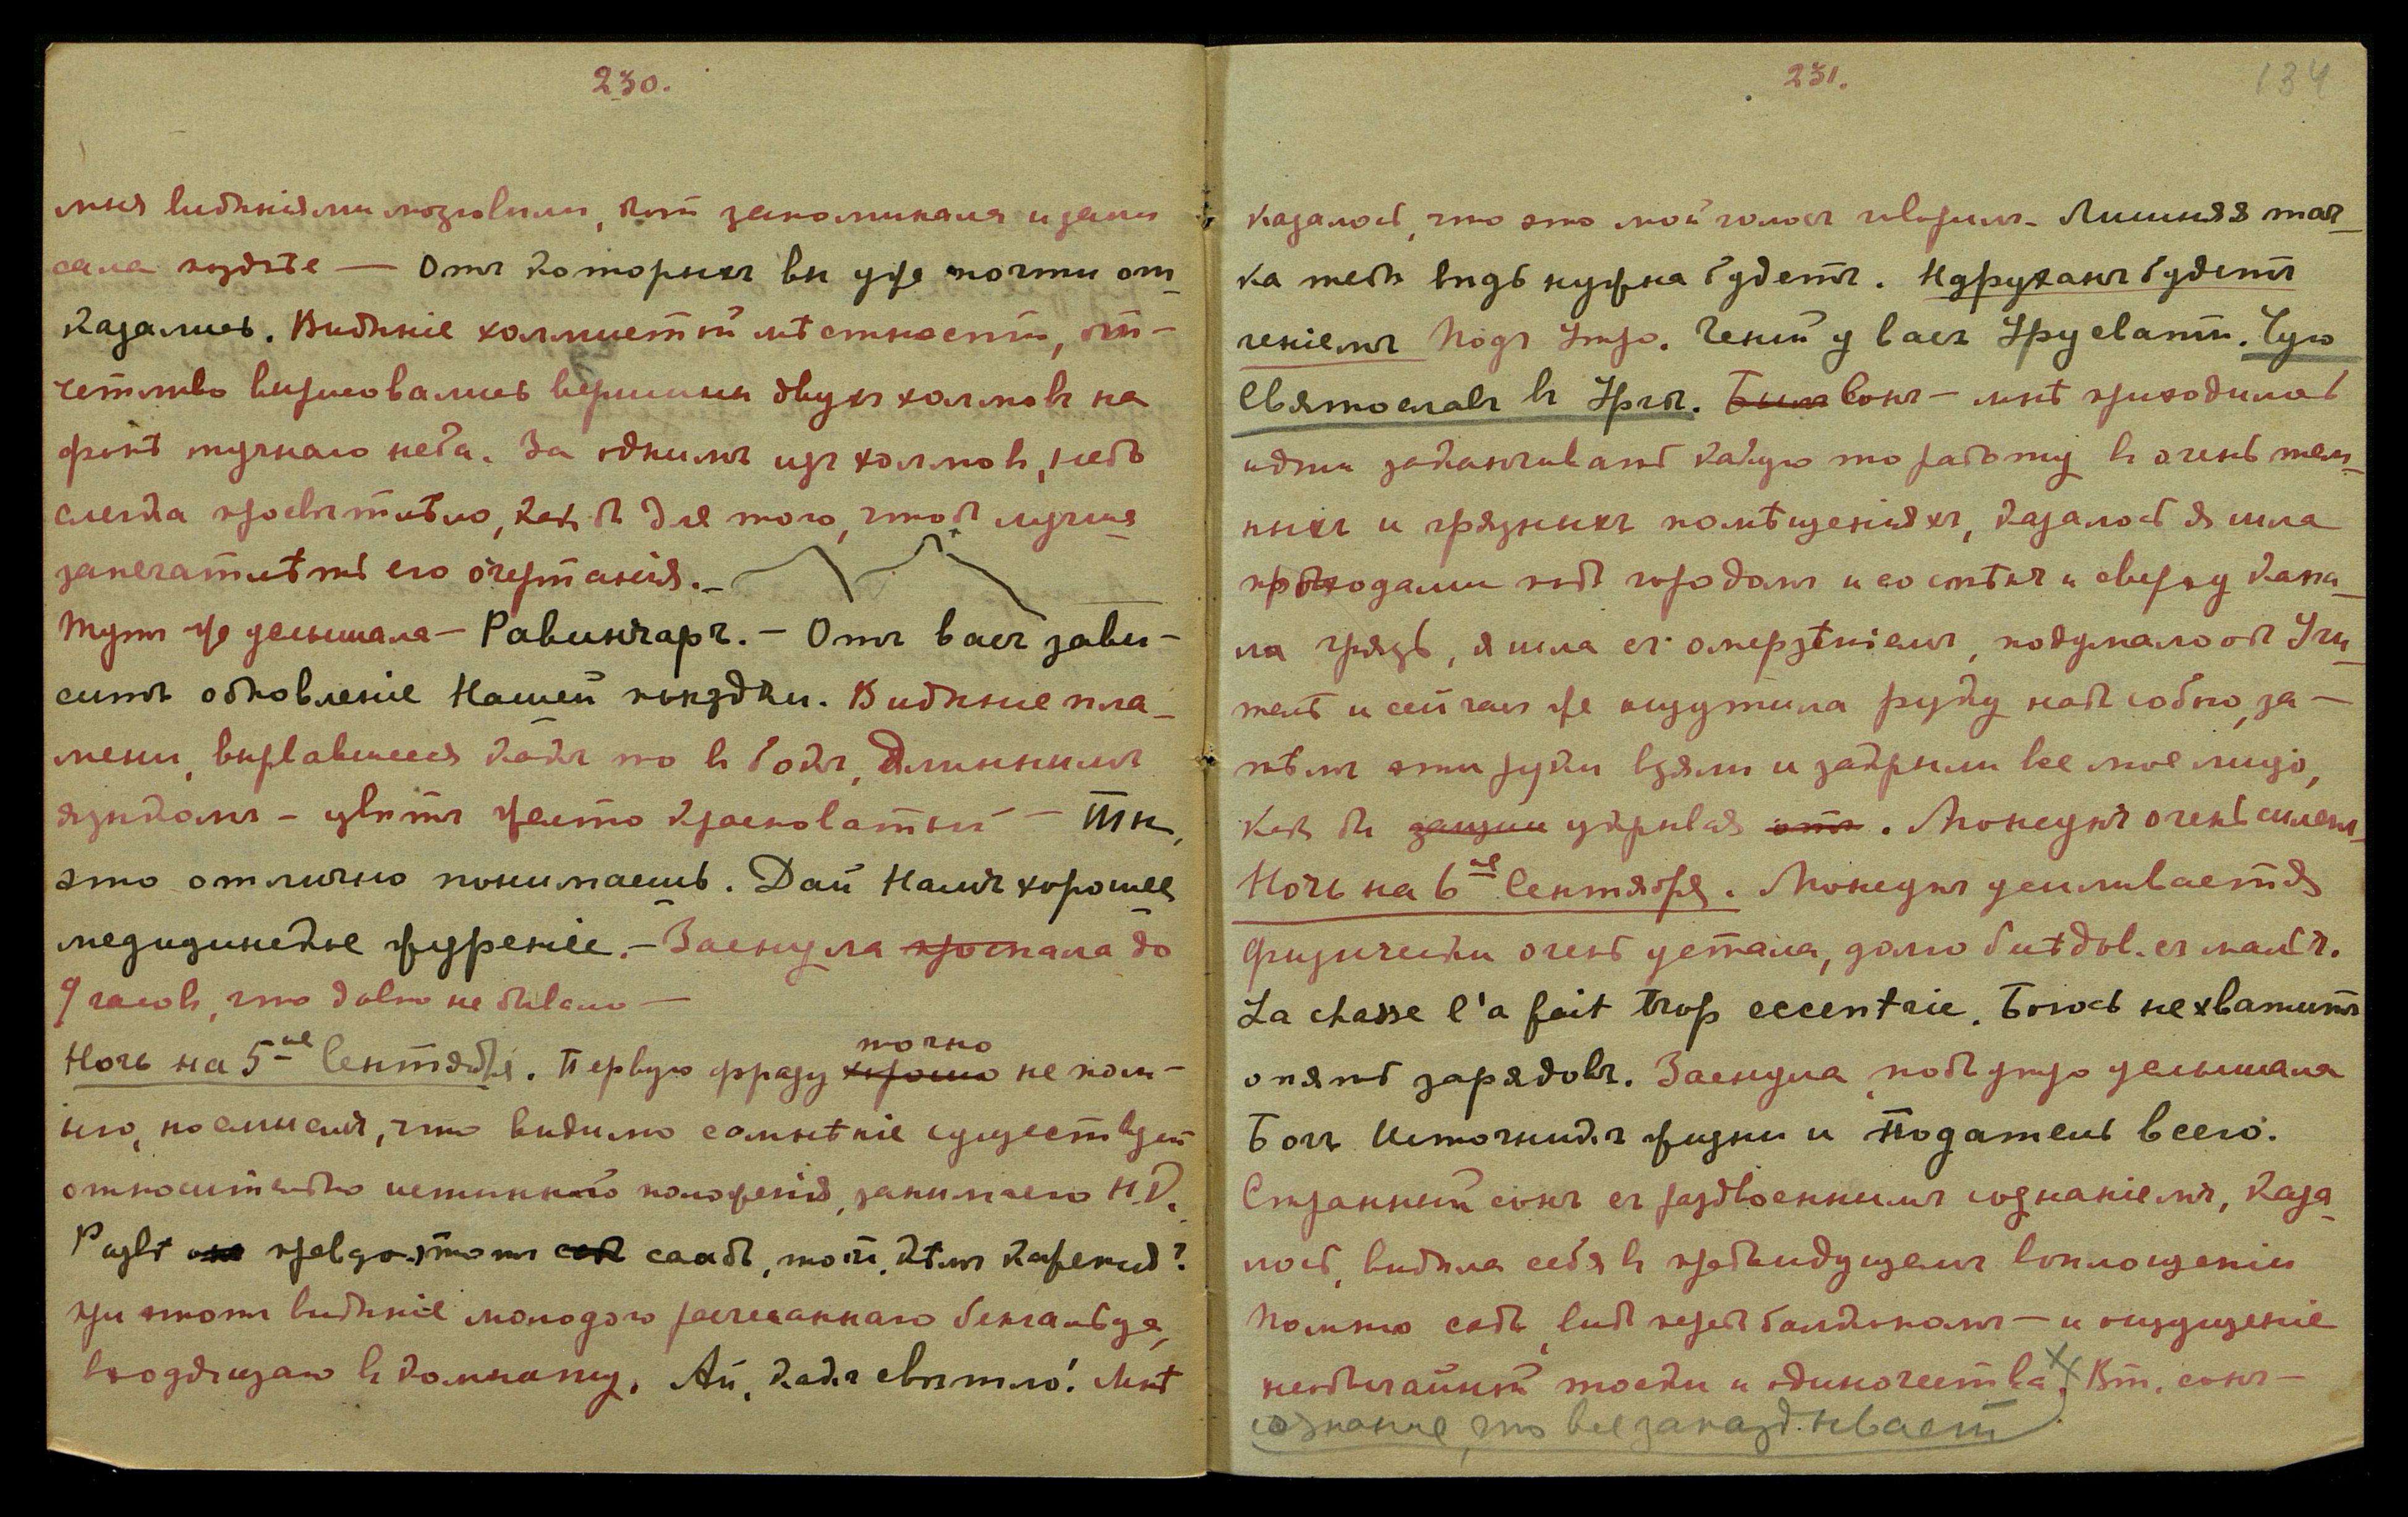 230.
мня видѣніями мозговыми, бот запоминала и запи
сала позднѣе — Отъ которыхъ вы уже почти от
казались. Видѣніе холмистой мѣстности, от-
четливо вырисовались вершины двухъ холмовъ на
фонѣ тучнаго неба. За однимъ изъ холмовъ, небо
слегка просвѣтлѣло, как бы для того, чтоб лучше
запечатлѣть его очертания. —
Тутъ же услышала — Равинчаръ. — Отъ васъ зави-
ситъ обновленіе Нашей поѣздки. Видѣние пла-
мени, вырвавшееся какъ то в бокъ, длиннымъ
языкомъ — цвѣтъ желто красноватый — Ты,
это отлично понимаешь. Дай Намъ хорошее
медицинское журение. — Заснула проспала до
9 часовъ, что давно не бывало —
Ночь на 5ое Сентября. Первую фразу хорошо точно не пом-
ню, но смыслъ, что видимо сомнѣніе существует
относительно истиннаго положенія, занимаего Н.К.
Развѣ правда, этотъ саабъ, той, кѣмъ кажется?
при этомъ видѣніе молодого расчесаннаго бенгальца,
входящаго в комнату. Ай, какъ свѣтло! Мнѣ
231.
134
казалось, что это мой голосъ говорилъ. Лишняя тач
ка тебѣ вѣдь нужна будетъ. Нагруженъ будетъ
чениемъ Подъ Утро. Чений у васъ Урусвати. Чую
Святославъ в Ургѣ. Былъ Сонъ — мнѣ приходилось
идти заканчивать какую то работу в очень тем
ныхъ и грязныхъ помѣщеніяхъ, казалось я шла
проходами подъ городомъ и со стѣнъ и сверху капа
ла грязь, я шла съ омерзѣніемъ, подумала об Учи
телѣ и сейчасъ же ощутила руку надъ собою, за-
тѣмъ эти руки взяли и закрыли все мое лицо,
как бы защищ укрывая отъ. Монсунъ очень силенъ
Ночь на 6ое Сентября. Монсунъ усиливается
физически очень устала, долго бесѣдов. съ мальч.
La chasse l'a fait trop eccentric. Боюсь не хватитъ
опять зарядовъ. Заснула, подъ утро услышала
Богъ Источникъ жизни и Податель всего.
Странный сонъ съ раздвоеннымъ сознаніемъ, каза
лось, видѣла себя в предыдущемъ воплощеніи
Помню садъ, видъ передъ балкономъ — и ощущеніе
необычайной тоски и одиночества. Вт. сонъ —
сознание, что все запаздывает